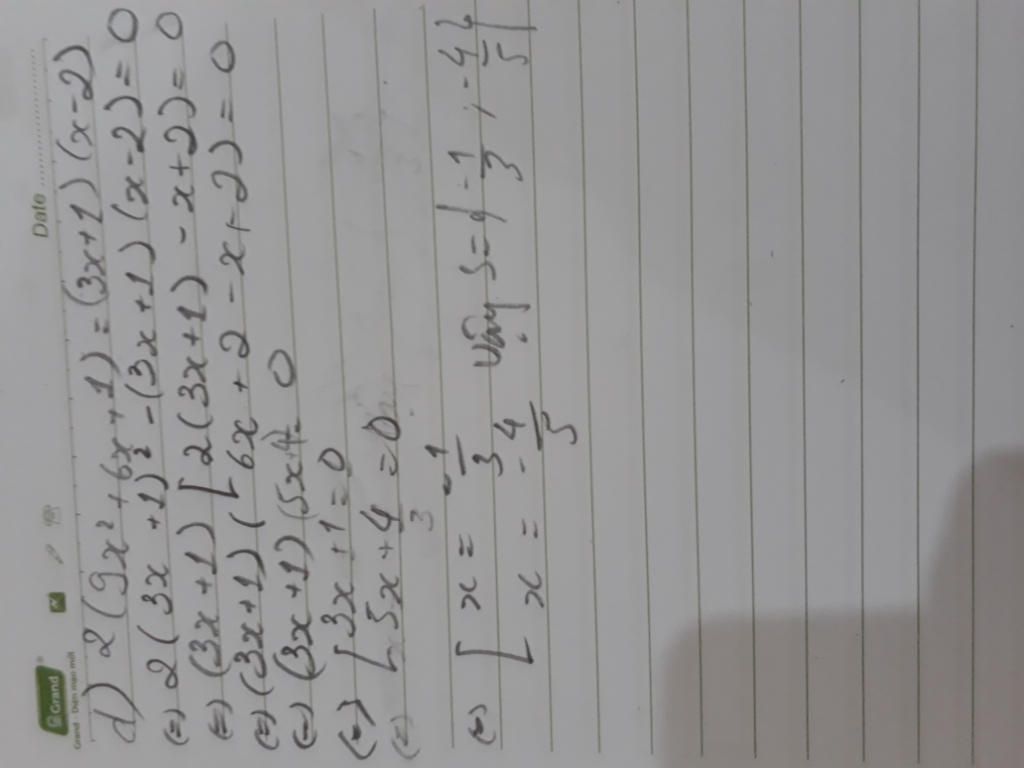 Grand
Grand - Diện mạo mới
Date
d) 2(9x² + 6x + 1) = (3x+1)(x-2)
(=) 2(3x+1)² - (3x+1)(x-2) = 0
(=) (3x+1)[2(3x+1) - x+2) = 0
(=) (3x+1)(6x+2 - x+2) = 0
(=) (3x+1)(5x+4 = 0
(=) [3x+1 = 0
(=) [5x+4 = 0
3
(=) [x = -1/3 Vậy S={-1/3, -4/5}
[x = -4/5